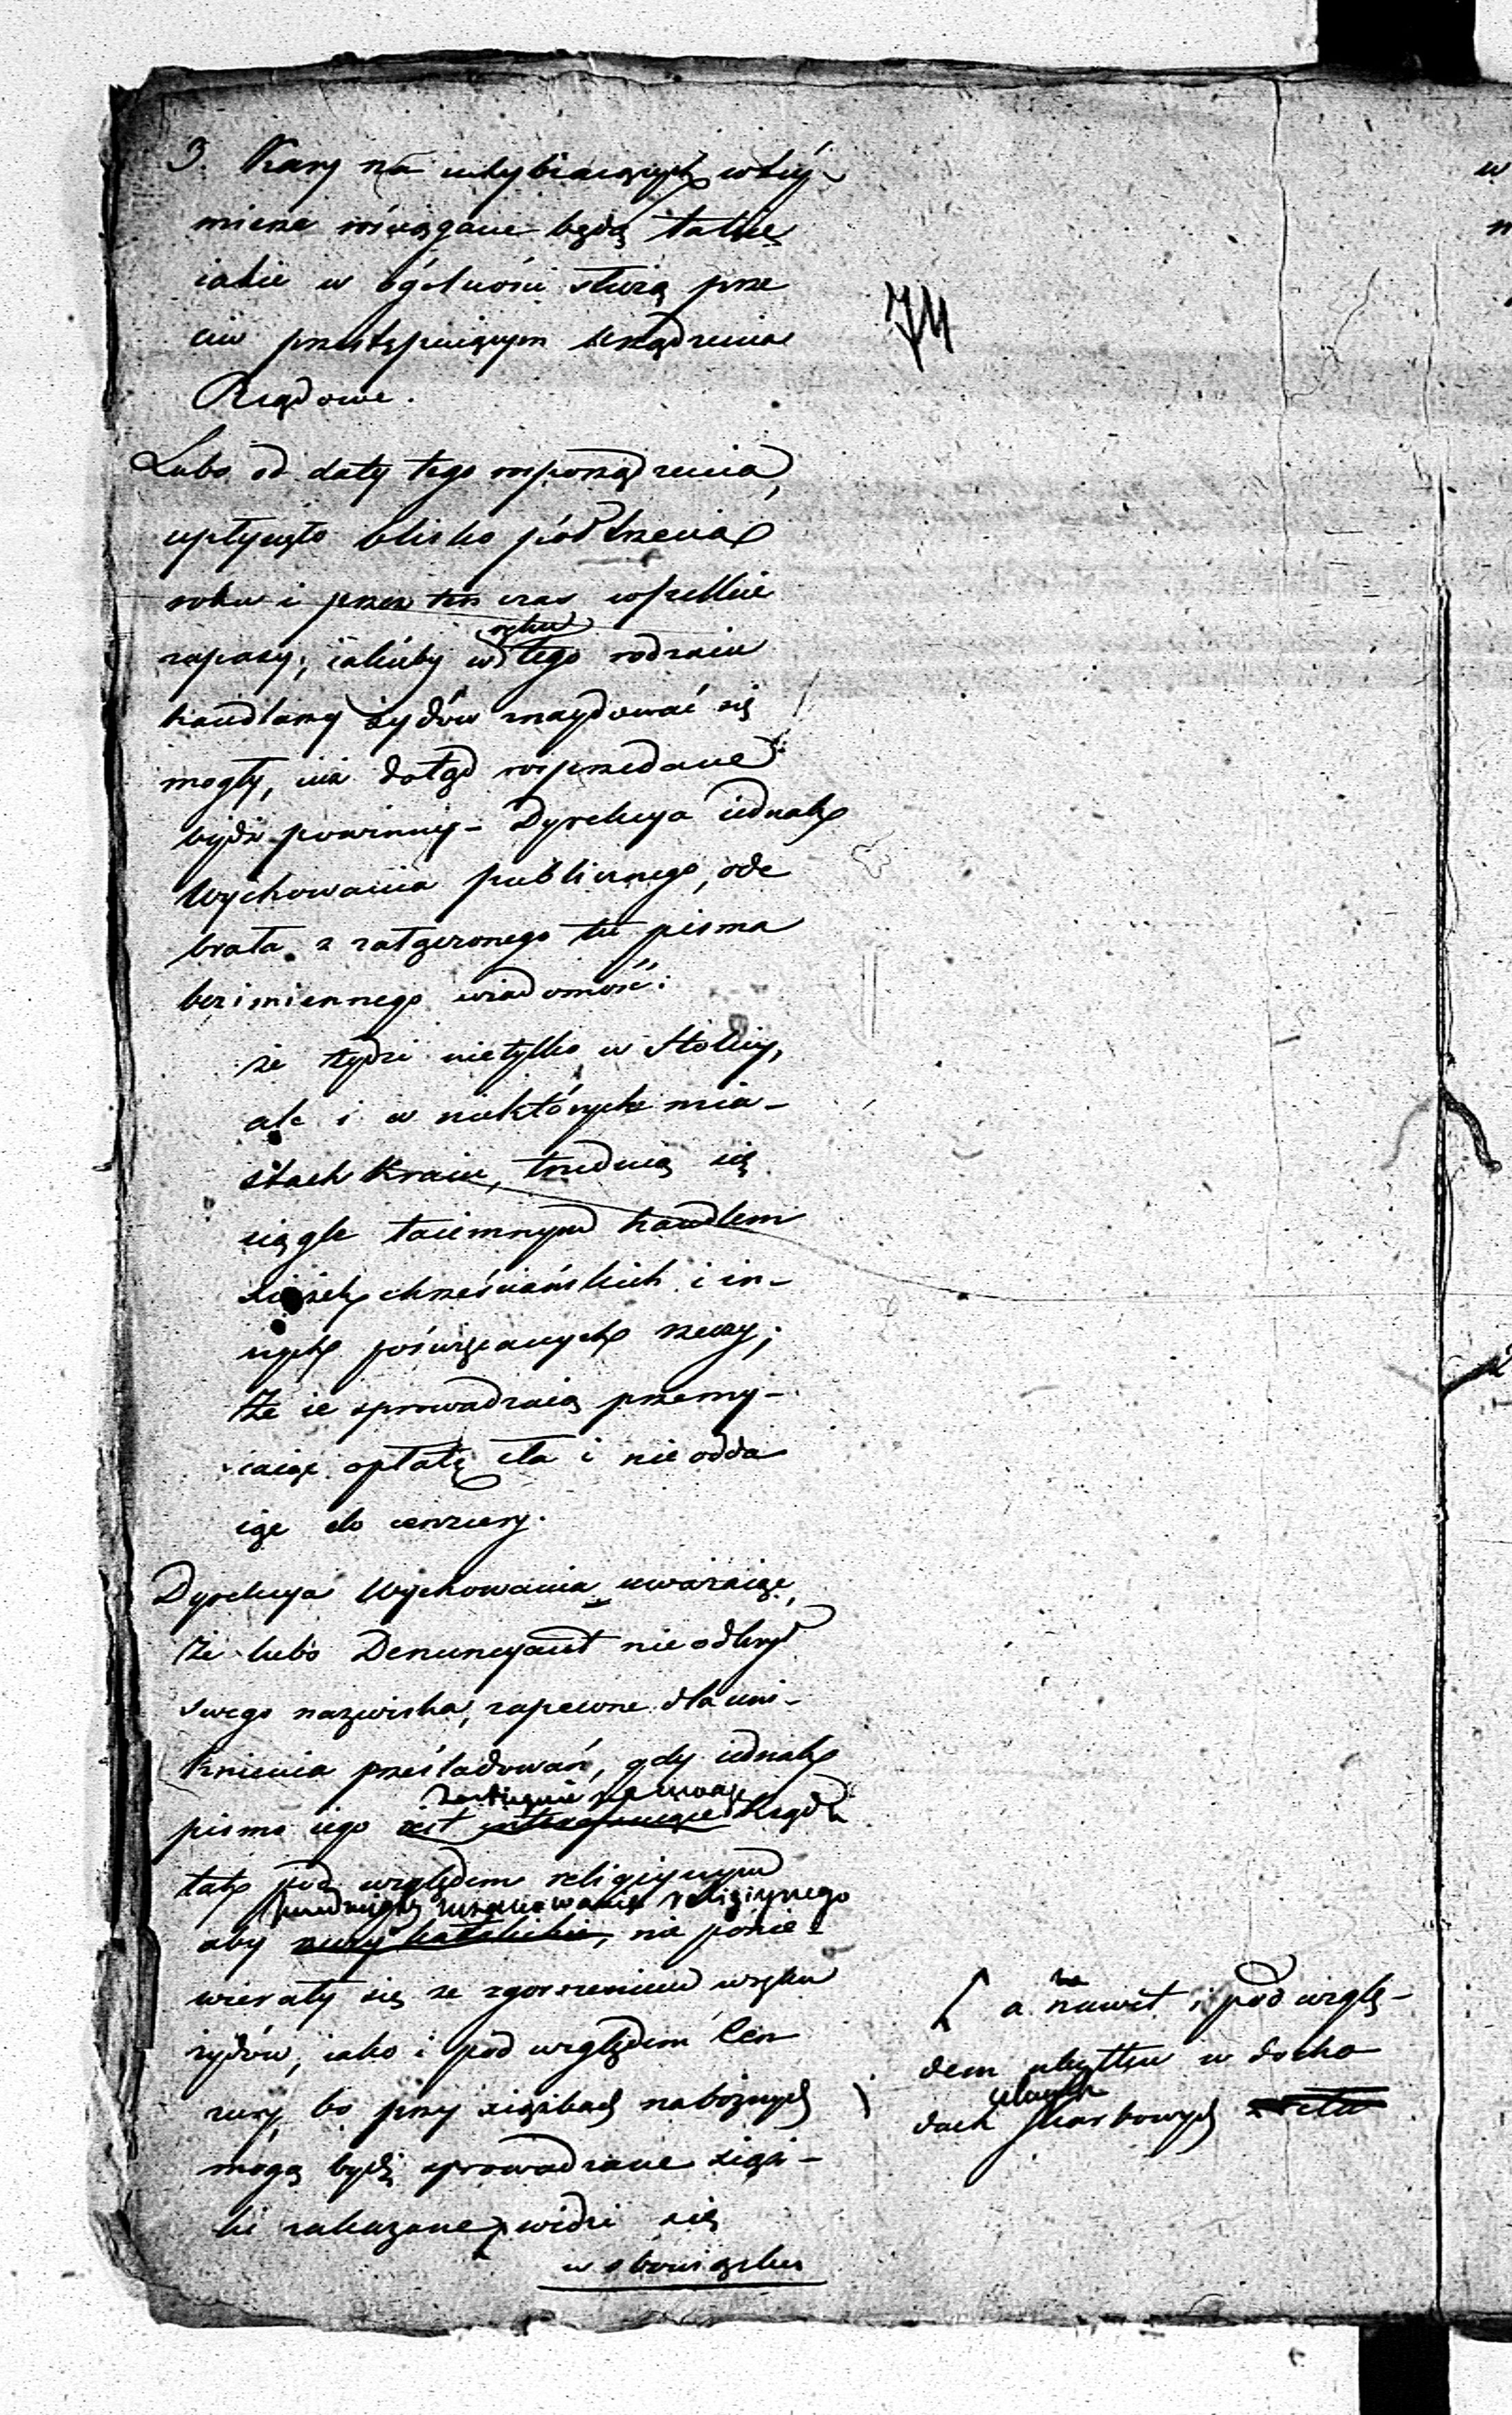 3. Kary na uchybiaiących w téy
mierze rościągane będą takie
iakie w ogólności służą prze
ciw przestępuiącym Urządzenia
Rządowe.
74
Lubo od daty tego rosporządzenia,
upłynęło blisko półtrzecia
roku i przez ten czas wszelkie
ręku
zapasy, iakieby w tego rodzaiu
handlarzy żydów znaydować się
mogły, iuż dotąd rosprzedane
bydź powinny - Dyrekcya iednak
Wychowania publicznego, ode
brała z załączonego tu pisma
bezimiennego wiadomość:
że żydzi nietylko w Stolicy,
ale i w niektórych mia-
stach Kraiu, trudnią się
ciągle taiemnym handlem
xiążek chrześciańskich i in-
nych poświęcanych rzeczy;
że ie sprowadzaią przemy-
caiąc opłatę cła i nie odda
iąc do cenzury.
Dyrekcya Wychowania uważaiąc,
że lubo Denuncyant nie odkrył
swego nazwiska, zapewne dla uni-
knienia prześladowań, gdy iednak
zasługuie na uwagę
pismo iego iest Rządu
tak pod względem religiynym
przedmioty uszanowania religiynego
aby rzeczy katolickie, nie ponie-
wierały się ze zgorszeniem w ręku
żydów, iako i pod względem Cen
zury, bo przy xiążkach nabożnych
mogą bydź sprowadzane xiąż-
ki zakazane, widzi się
w obowiązku
a nawet i pod wzglę-
dem ubytku w docho
dach Skarbowych